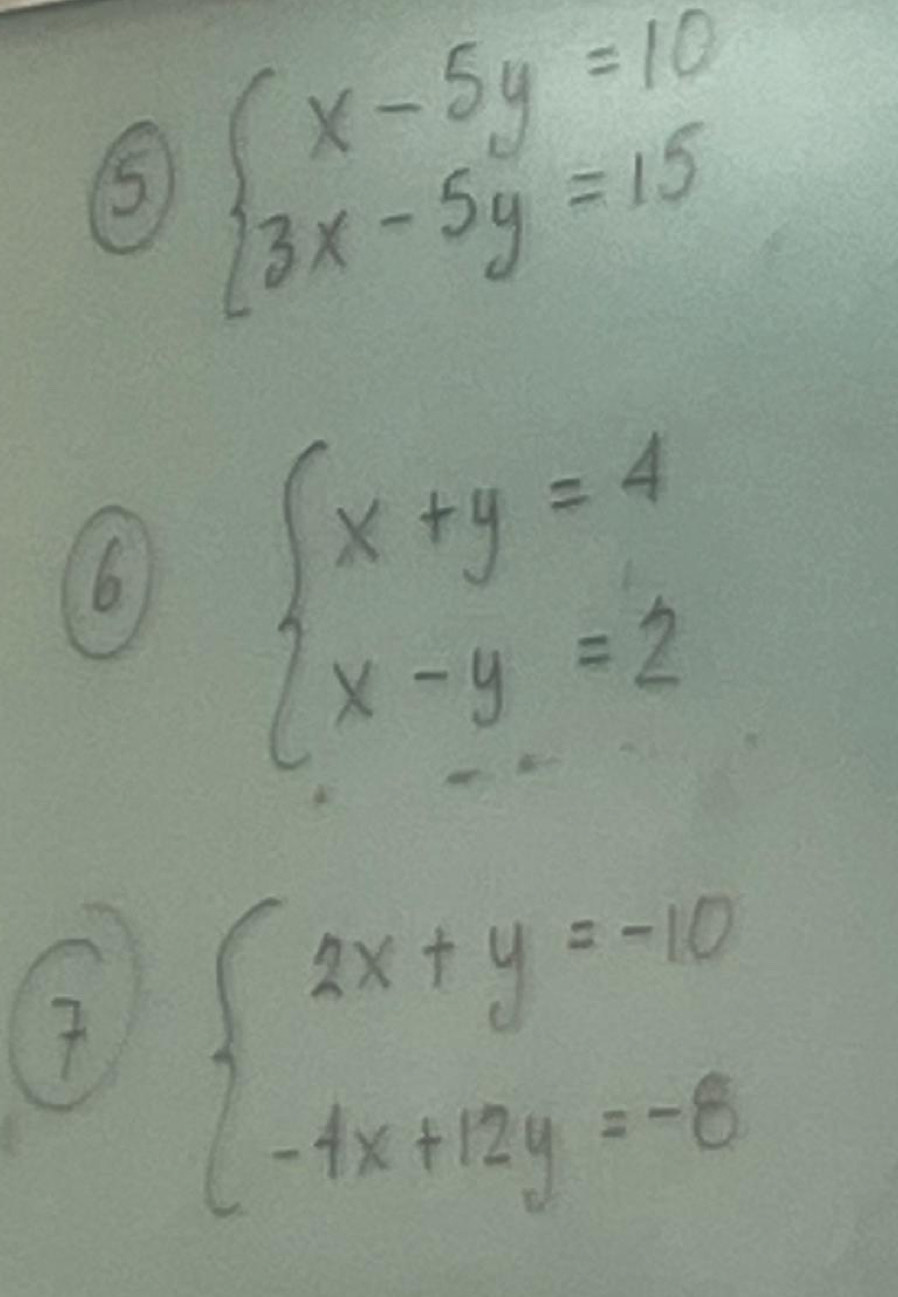 x - 5y = 10
⑤
3x - 5y = 15
x + y = 4
⑥
x - y = 2
2x + y = -10
⑦
-4x + 12y = -8